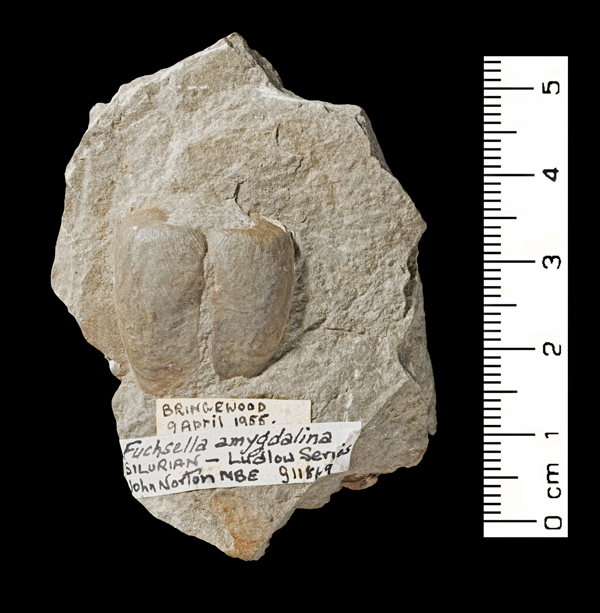 BRINGEWOOD
9 April 1955.
Fuchsella amygdalina
SILURIAN – Ludlow Series
John Norton MBE
5
4
3
2
1
0 cm